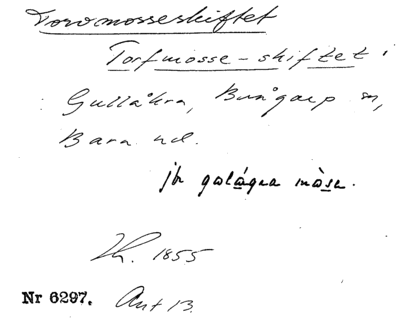 Torvmosseskiftet
Torfmosse-skiftet i
Gullåkra, Brågarp sn,
Bara hd.
jfr galágra mòsa.
Lh. 1855
Nr 6297. Ant 13.